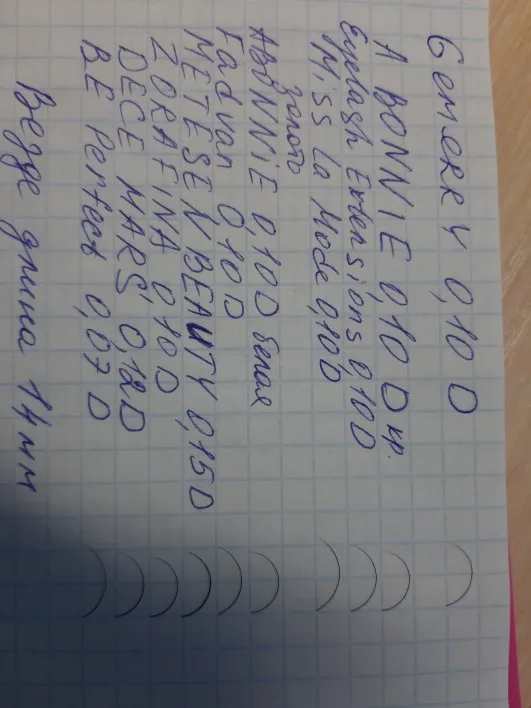 Gemerry 0,10 D
ABONNIE 0,10 D кр.
Eyelash Extensions 0,10D
Miss La Mode 0,10D
золото
ABONNiE 0,10D белая
Fadvan 0,10D
METESEN BEAUTY 0,15D
ZORAFINA 0,10D
DECE MARS 0,12D
BE Perfect 0,07D
Везде длина 14мм